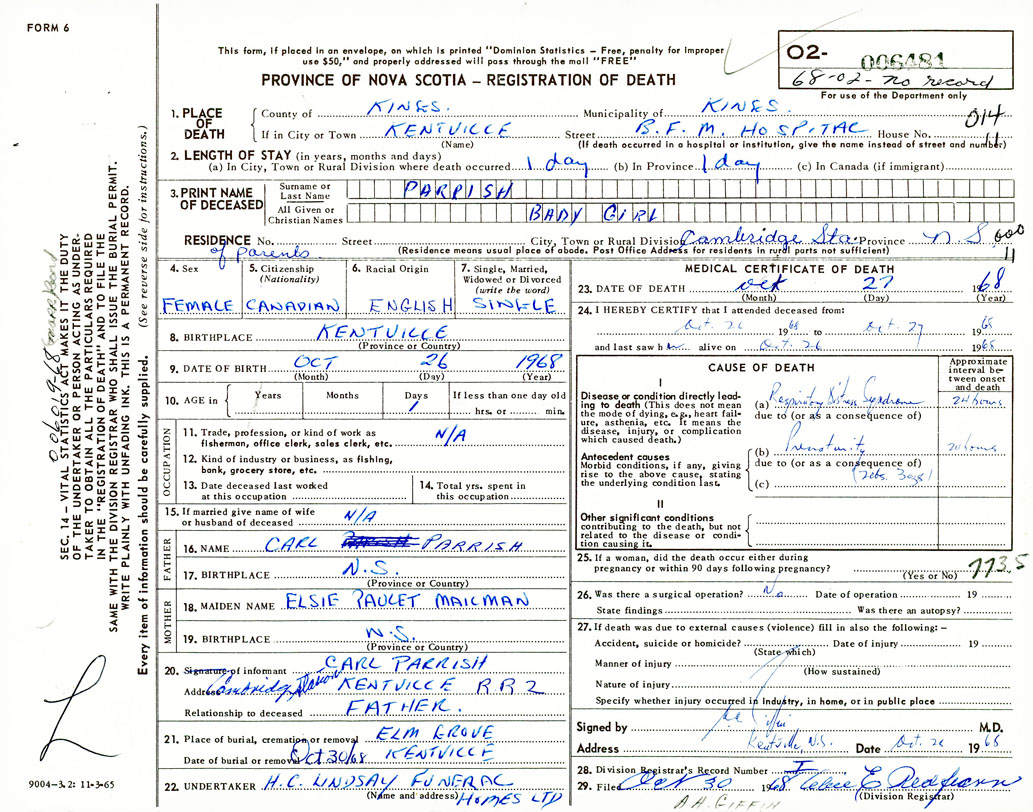 FORM 6
This form, if placed in an envelope, on which is printed "Dominion Statistics – Free, penalty for improper
use $50," and properly addressed will pass through the mail "FREE"
PROVINCE OF NOVA SCOTIA – REGISTRATION OF DEATH
O2- 006481
68-02- no record
For use of the Department only
014
11
1. PLACE OF DEATH
County of KINGS. Municipality of KINGS.
If in City or Town KENTVILLE Street B.F.M. HOSPITAL House No.
(Name) (If death occurred in a hospital or institution, give the name instead of street and number)
2. LENGTH OF STAY (in years, months and days)
(a) In City, Town or Rural Division where death occurred 1 day (b) In Province 1 day (c) In Canada (if immigrant)
3. PRINT NAME OF DECEASED
Surname or Last Name PARRISH
All Given or Christian Names BABY GIRL
RESIDENCE No. Street City, Town or Rural Division Cambridge Sta. Province N.S. 000
of parents. (Residence means usual place of abode. Post Office Address for residents in rural parts not sufficient) 11
4. Sex FEMALE
5. Citizenship (Nationality) CANADIAN
6. Racial Origin ENGLISH
7. Single, Married, Widowed or Divorced (write the word) SINGLE
8. BIRTHPLACE KENTVILLE
(Province or Country)
9. DATE OF BIRTH OCT 26 1968
(Month) (Day) (Year)
10. AGE in Years Months Days If less than one day old
1 hrs. or min.
OCCUPATION
11. Trade, profession, or kind of work as fisherman, office clerk, sales clerk, etc. N/A
12. Kind of industry or business, as fishing, bank, grocery store, etc.
13. Date deceased last worked at this occupation
14. Total yrs. spent in this occupation
15. If married give name of wife or husband of deceased N/A
FATHER
16. NAME CARL PARRISH
17. BIRTHPLACE N.S.
(Province or Country)
MOTHER
18. MAIDEN NAME ELSIE PAULET MAILMAN
19. BIRTHPLACE N.S.
(Province or Country)
20. Signature of informant CARL PARRISH
Address Cambridge Station KENTVILLE R R 2
Relationship to deceased FATHER.
21. Place of burial, cremation or removal ELM GROVE
Date of burial or removal Oct 30/68 KENTVILLE
22. UNDERTAKER H.C. LINDSAY FUNERAL
(Name and address) HOMES LTD
MEDICAL CERTIFICATE OF DEATH
23. DATE OF DEATH Oct 27 1968
(Month) (Day) (Year)
24. I HEREBY CERTIFY that I attended deceased from:
Oct. 26 1968 to Oct. 27 1968
and last saw her alive on Oct. 26 1968
CAUSE OF DEATH
Approximate interval between onset and death
I
Disease or condition directly leading to death (This does not mean the mode of dying, e.g., heart failure, asthenia, etc. It means the disease, injury, or complication which caused death.)
(a) Respiratory Distress Syndrome 24 hours
due to (or as a consequence of)
Antecedent causes
Morbid conditions, if any, giving rise to the above cause, stating the underlying condition last.
(b) Prematurity 24 hours
due to (or as a consequence of)
(c)
II
Other significant conditions contributing to the death, but not related to the disease or condition causing it.
25. If a woman, did the death occur either during pregnancy or within 90 days following pregnancy?
(Yes or No) 773.5
26. Was there a surgical operation? No Date of operation 19
State findings Was there an autopsy?
27. If death was due to external causes (violence) fill in also the following:–
Accident, suicide or homicide? Date of injury 19
(State which)
Manner of injury
(How sustained)
Nature of injury
Specify whether injury occurred in Industry, in home, or in public place
Signed by M.D.
Address Kentville, N.S. Date Oct. 1968
28. Division Registrar's Record Number
29. Filed Oct 30 1968
(Division Registrar)
A.H. GIFFIN
SEC. 14 – VITAL STATISTICS ACT MAKES IT THE DUTY
OF THE UNDERTAKER OR PERSON ACTING AS UNDER-
TAKER TO OBTAIN ALL THE PARTICULARS REQUIRED
IN THE "REGISTRATION OF DEATH" AND TO FILE THE
SAME WITH THE DIVISION REGISTRAR WHO SHALL ISSUE THE BURIAL PERMIT.
WRITE PLAINLY WITH UNFADING INK. THIS IS A PERMANENT RECORD.
Every item of information should be carefully supplied. (See reverse side for instructions.)
006019-68
9004-3.2: 11-3-65